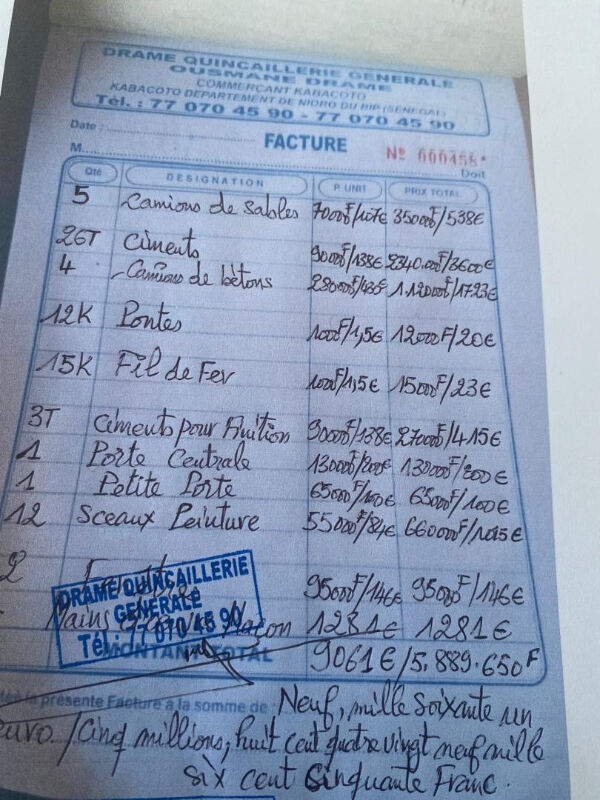 DRAME QUINCAILLERIE GENERALE
OUSMANE DRAME
COMMERÇANT KABACOTO
KABACOTO DEPARTEMENT DE NIORO DU RIP (SENEGAL)
Tél. : 77 070 45 90 - 77 070 45 90
Date :
FACTURE
Nº 000458
M. Doit
Qté DESIGNATION P. UNIT PRIX TOTAL
5 Camions de Sables 70000F/107€ 350000F/538€
26T Ciments 90000F/138€ 2340.000F/3600€
4 Camions de bétons 280000F/430€ 1120000F/1723€
12K Pontes 1000F/1,5€ 12000F/20€
15K Fil de Fer 1000F/1,5€ 15000F/23€
3T Ciments pour Finition 90000F/138€ 270000F/415€
1 Porte Centrale 130000F/200€ 130000F/200€
1 Petite Porte 65000F/100€ 65000F/100€
12 Sceaux Peinture 55000F/84€ 660000F/1015€
2 95000F/146€ 95000F/146€
Mains Maçon 1281€ 1281€
DRAME QUINCAILLERIE
GENERALE
Tél.: 77 070 45 90
MONTANT TOTAL 9061€/5.889.650F
la présente Facture à la somme de : Neuf, mille soixante un
euro. /Cinq millions, huit cent quatre vingt neuf mille
six cent Cinquante Franc.